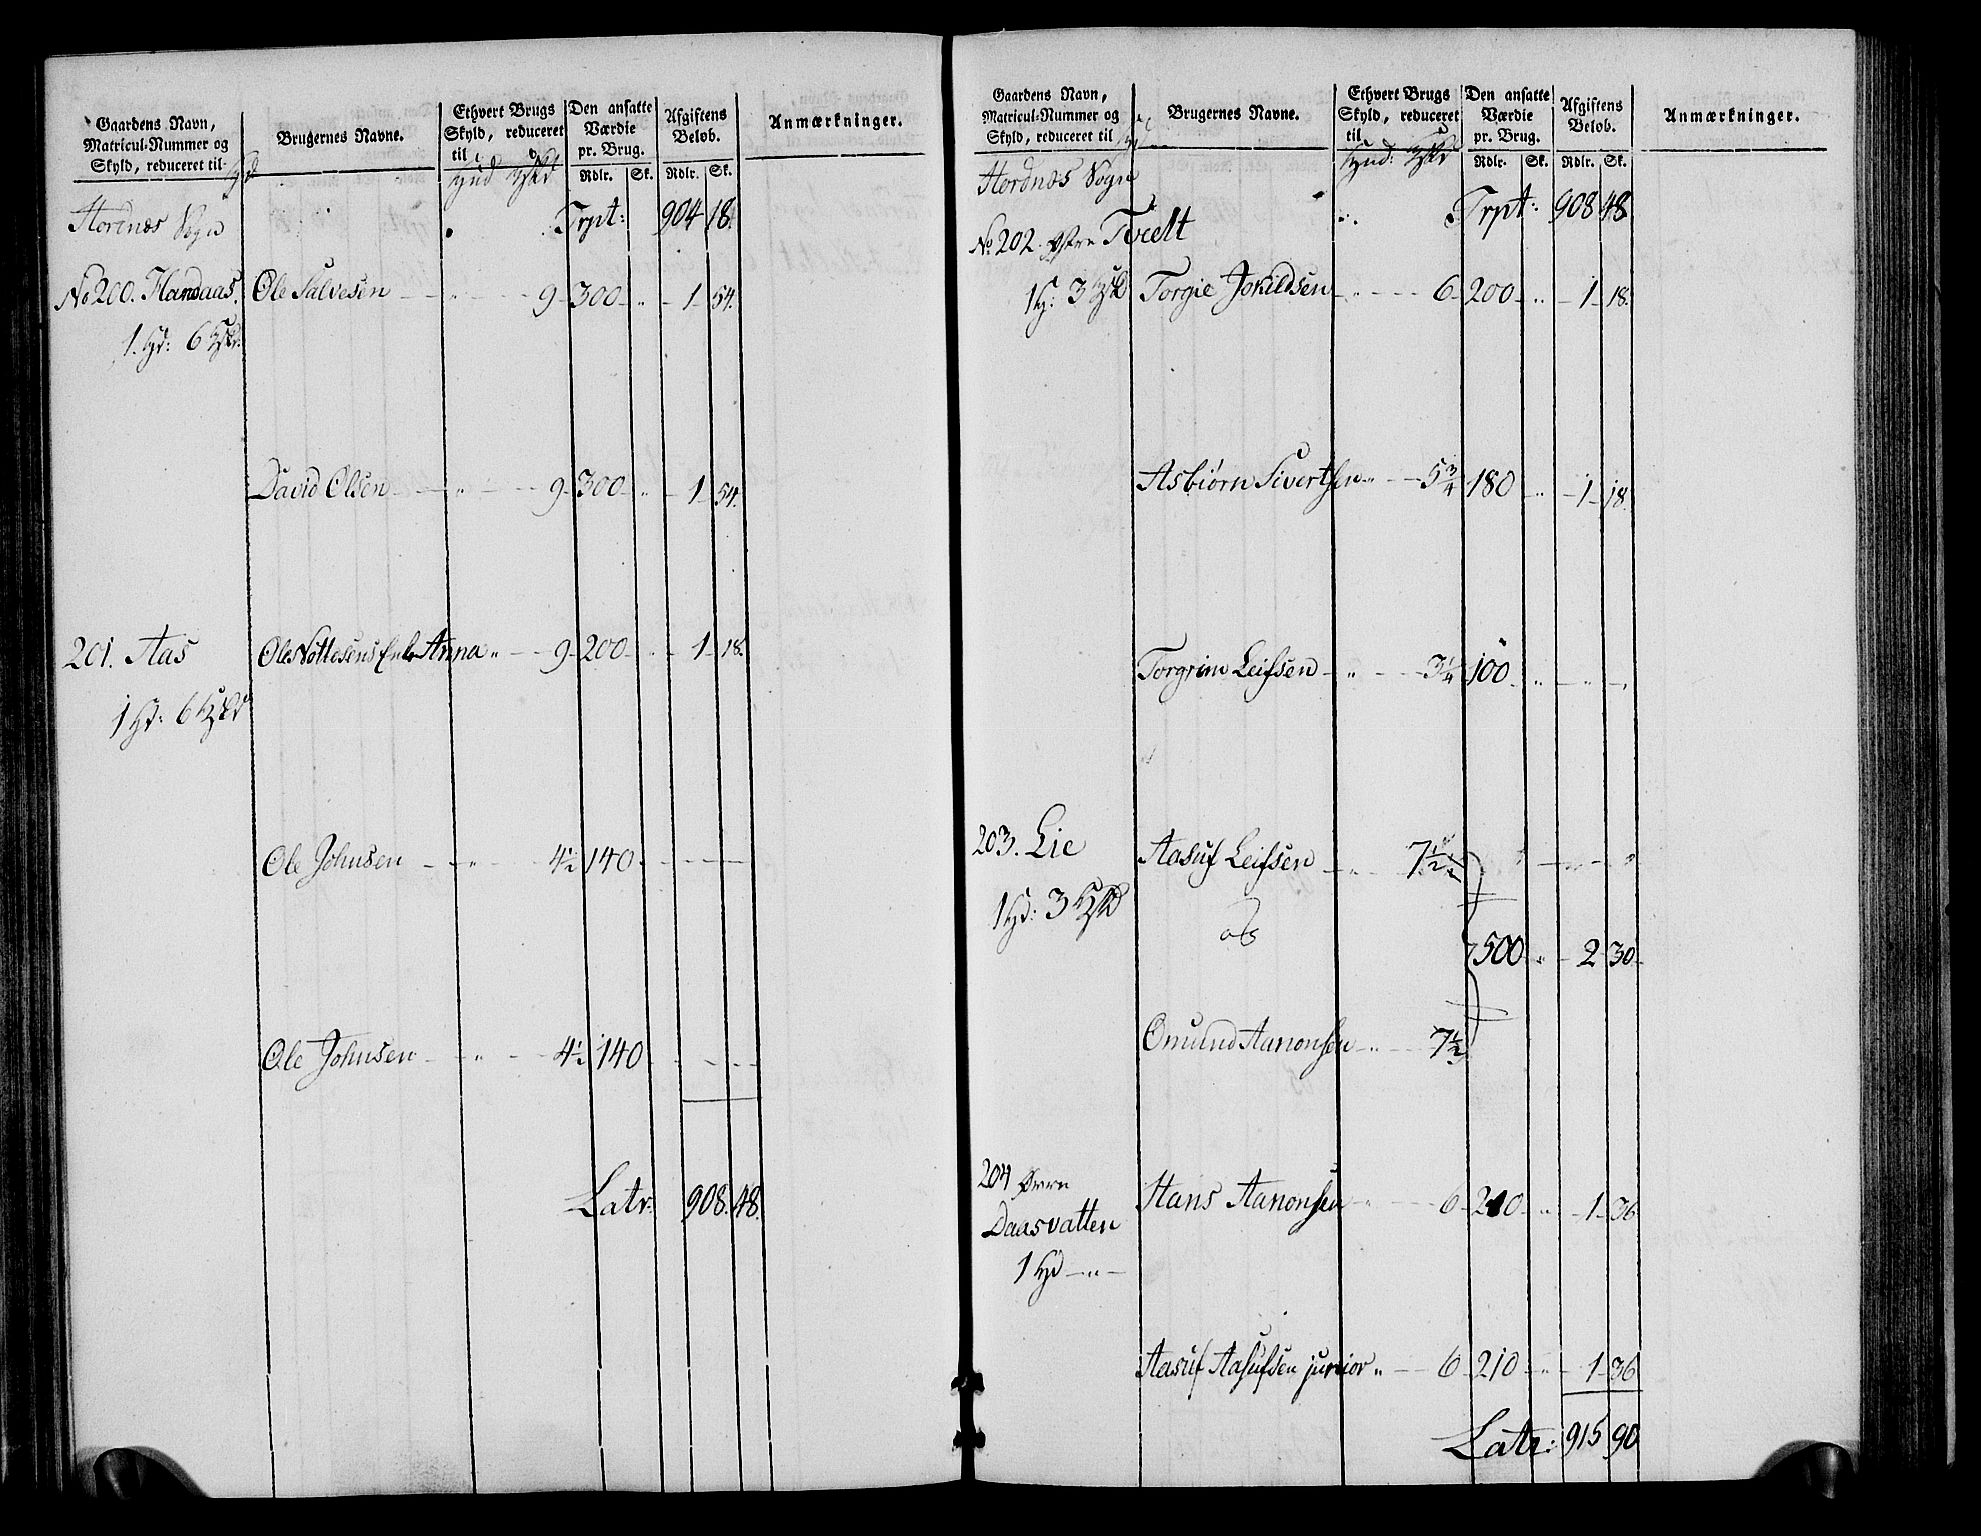 Gaardens Navn,
Matricul-Nummer og
Skyld, reduceret til
Brugernes Navne.
Ethvert Brugs
Skyld, reduceret
til
Den ansatte
Værdie
pr. Brug.
Rdlr. Sk.
Afgiftens
Belob.
Rdlr. Sk.
Anmærkninger.
Hordnæs Sogn
Trpt: 904 18.
No 200. Handaas. Ole Salvesen — " — 9 — 300 — " — 1 — 54.
1. Hd: 6 Skd.
David Olsen — " — 9 — 300 — " — 1 — 54.
201. Aas Ole Nottosens Enke Anna " — 9 — 200 — " — 1 — 18.
1 Hd: 6 Skd
Ole Johnsen — " — 4½ 140 — — —
Ole Johnsen — " — 4½ 140 — — —
Latr: 908. 48.
Gaardens Navn,
Matricul-Nummer og
Skyld, reduceret til
Brugernes Navne.
Ethvert Brugs
Skyld, reduceret
til
Den ansatte
Værdie
pr. Brug.
Rdlr. Sk.
Afgiftens
Belob.
Rdlr. Sk.
Anmærkninger.
Hordnæs Sogn
Trpt: 908 48
No 202. Østre Tvedt
1 H: 3 Skd Torgie Jokildsen — " — 6 — 200 — " — 1 — 18.
Asbiørn Sivertsen " — 5¾ 180 — " — 1 — 18.
Torgrim Leifsen — " — 3¼ 100 — " — " —
203. Lie Aasuf Leifsen — " — 7½ " — " — "
1 Hd: 3 Skd
og
500 — " — 2 — 30 —
Onund Aanonsen — " — 7½
204 Øvre Hans Aanonsen " — 6 — 210 — " — 1 — 36
Daasvatten
1 Hd — " —
Aasuf Aasufsen junior " — 6 — 210 — " — 1 — 36
Latr: 915 90